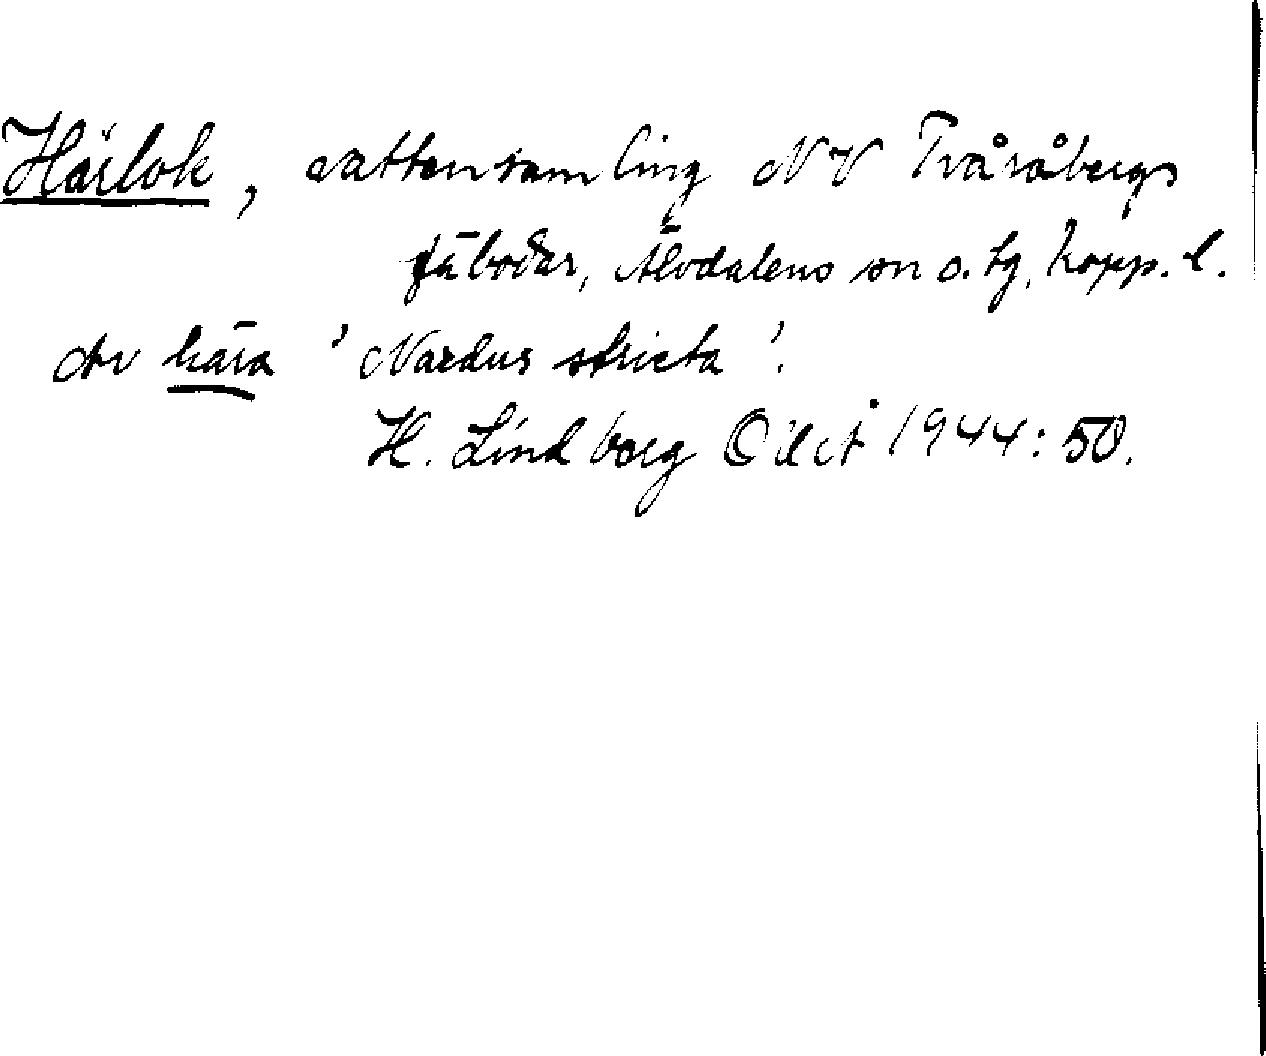 Härlok, vattensamling NV Tvåråbergs
fäbodar, Älvdalens sn o. tg, Kopp. l.
Av hära 'Nardus stricta'.
H. Lindborg 1944: 50.